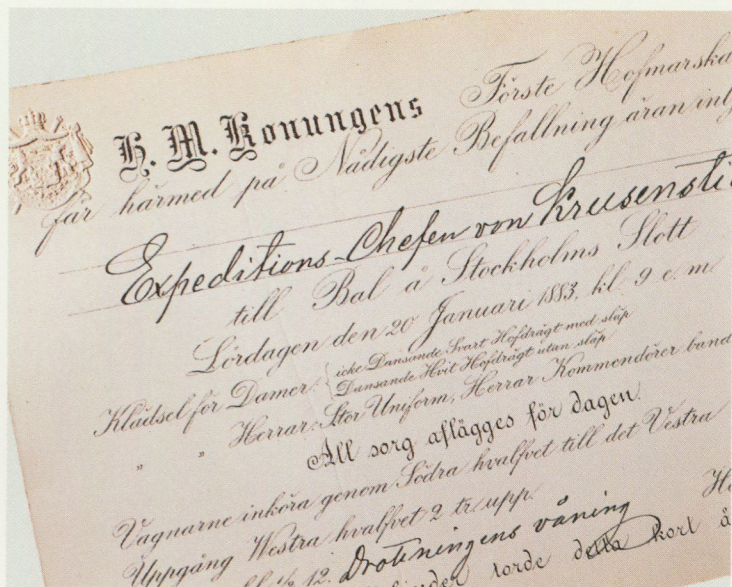 H. M. Konungens Förste Hofmarska
får härmed på Nådigste Befallning äran inbj
Expeditions-Chefen von Krusenstje
till Bal å Stockholms Slott
Lördagen den 20 Januari 1883, kl. 9 e. m.
Klädsel för Damer: { icke Dansande Svart Hofdrägt med släp
Dansande Hvit Hofdrägt utan släp
" " Herrar: Stor Uniform, Herrar Kommendörer band
All sorg aflägges för dagen.
Vagnarne inköra genom Södra hvalfvet till det Vestra
Uppgång Westra hvalfvet 2 tr. upp.
½ 12. Drottningens våning
torde detta kort å